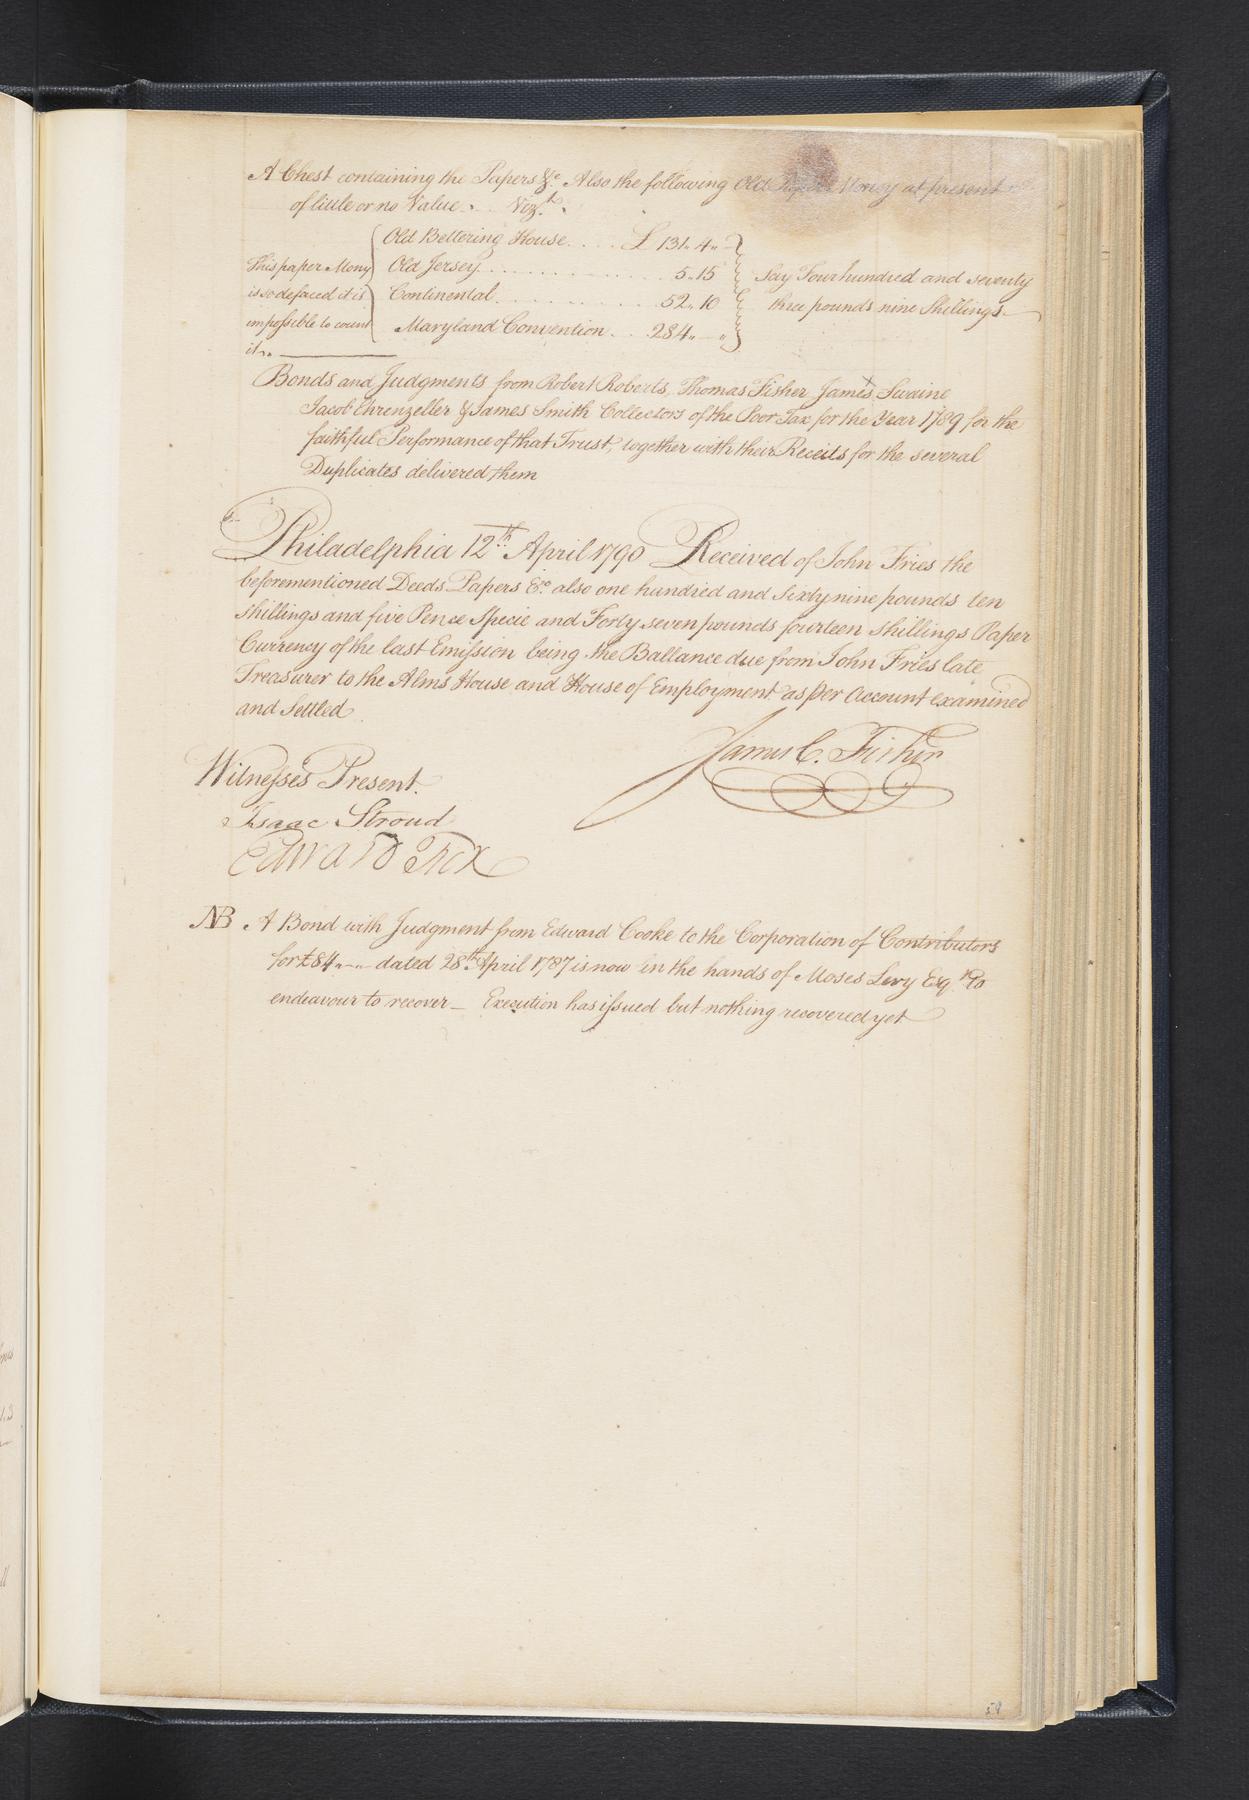 A Chest containing the Papers &c. Also the following Old Paper Money at present
of little or no Value. . . Vizt.
Old Bettering House. . . . £ 131. 4. -
This paper Mony Old Jersey . . . . . . . . . . . . 5.15 Say Four hundred and seventy
is so defaced it is Continental . . . . . . . . . . . 52. 10 three pounds nine Shillings.
impossible to count Maryland Convention . . . 284. - "
it.
Bonds and Judgments from Robert Roberts, Thomas Fisher James Swaine
Jacob Ehrenzeller & James Smith Collectors of the Poor Tax for the Year 1789 for the
faithful Performance of that Trust, together with their Receits for the several
Duplicates delivered them
Philadelphia 12th April 1790 Received of John Fries the
beforementioned Deeds Papers &c. also one hundred and Sixty nine pounds ten
shillings and five Pence Specie and Forty seven pounds fourteen shillings Paper
Currency of the last Emission being the Ballance due from John Fries late
Treasurer to the Alms House and House of Employment as per Account examined
and Settled
James C. Fisher
Witnesses Present.
Isaac Stroud
Edward Fox
NB A Bond with Judgment from Edward Cooke to the Corporation of Contributors
for £84 " - " - dated 28th April 1787 is now in the hands of Moses Levy Esqr. To
endeavour to recover _ Execution has issued but nothing recovered yet
59